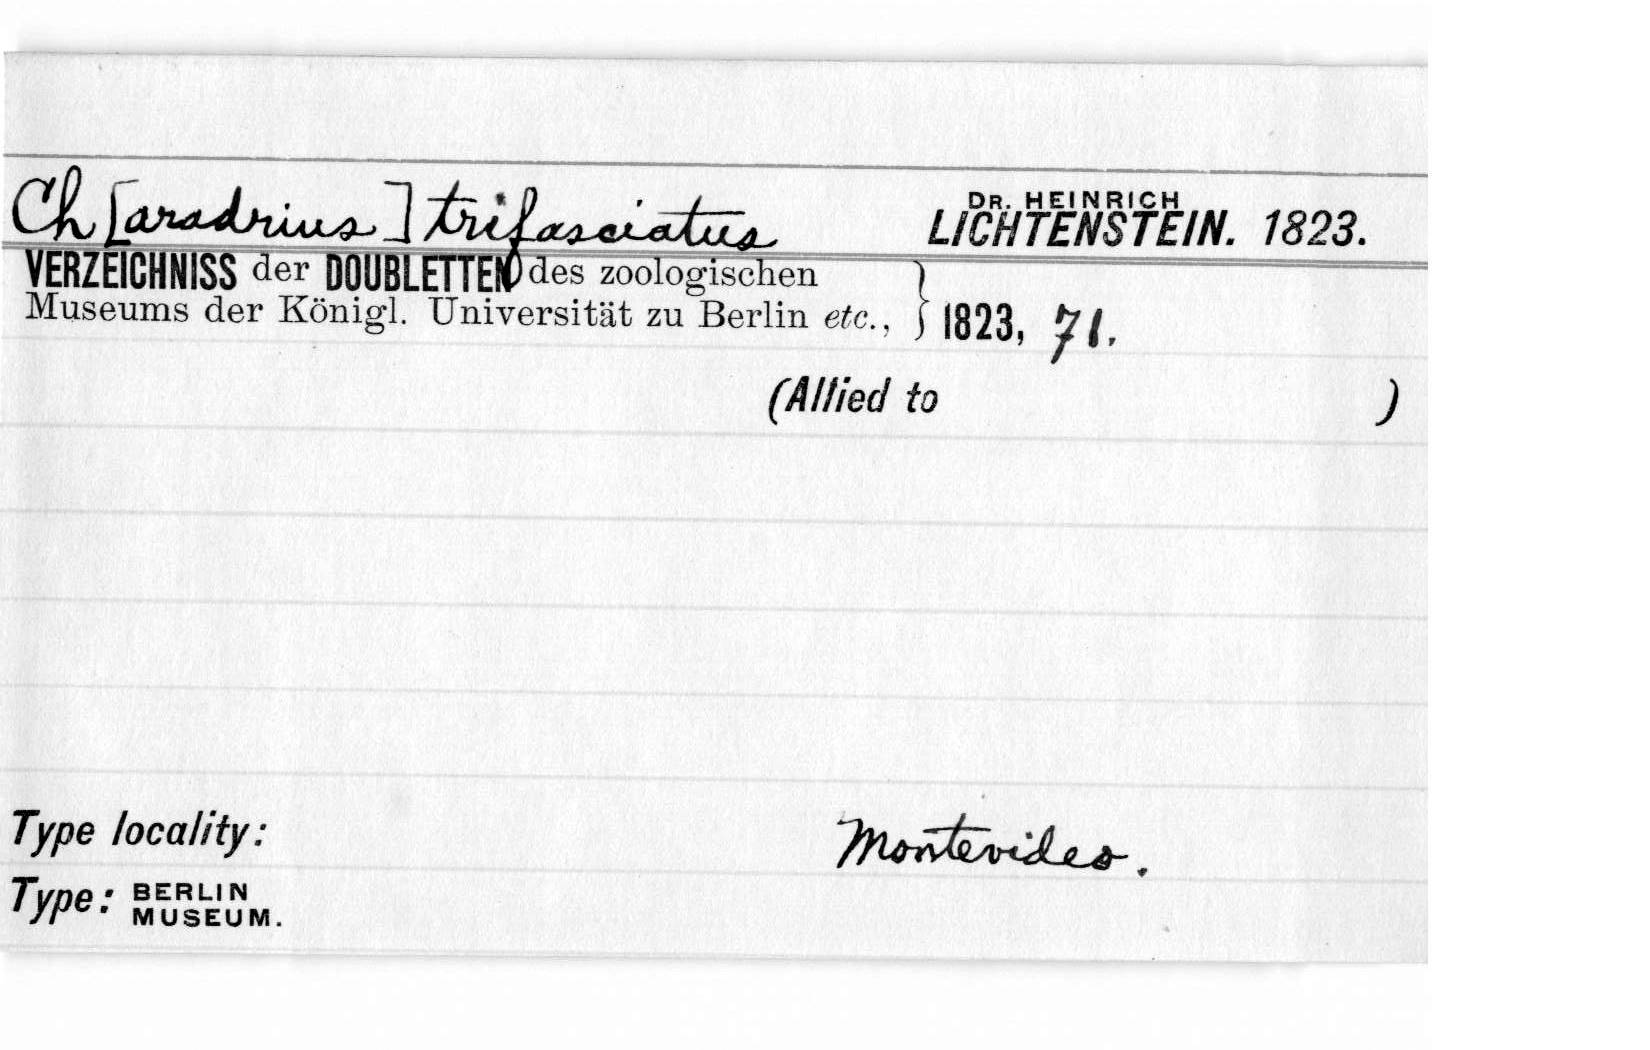 Ch[aradrius] trifasciatus DR. HEINRICH LICHTENSTEIN. 1823.
VERZEICHNISS der DOUBLETTEN des zoologischen
Museums der Königl. Universität zu Berlin etc., } 1823, 71.
(Allied to )
Type locality: Montevideo.
Type: BERLIN MUSEUM.